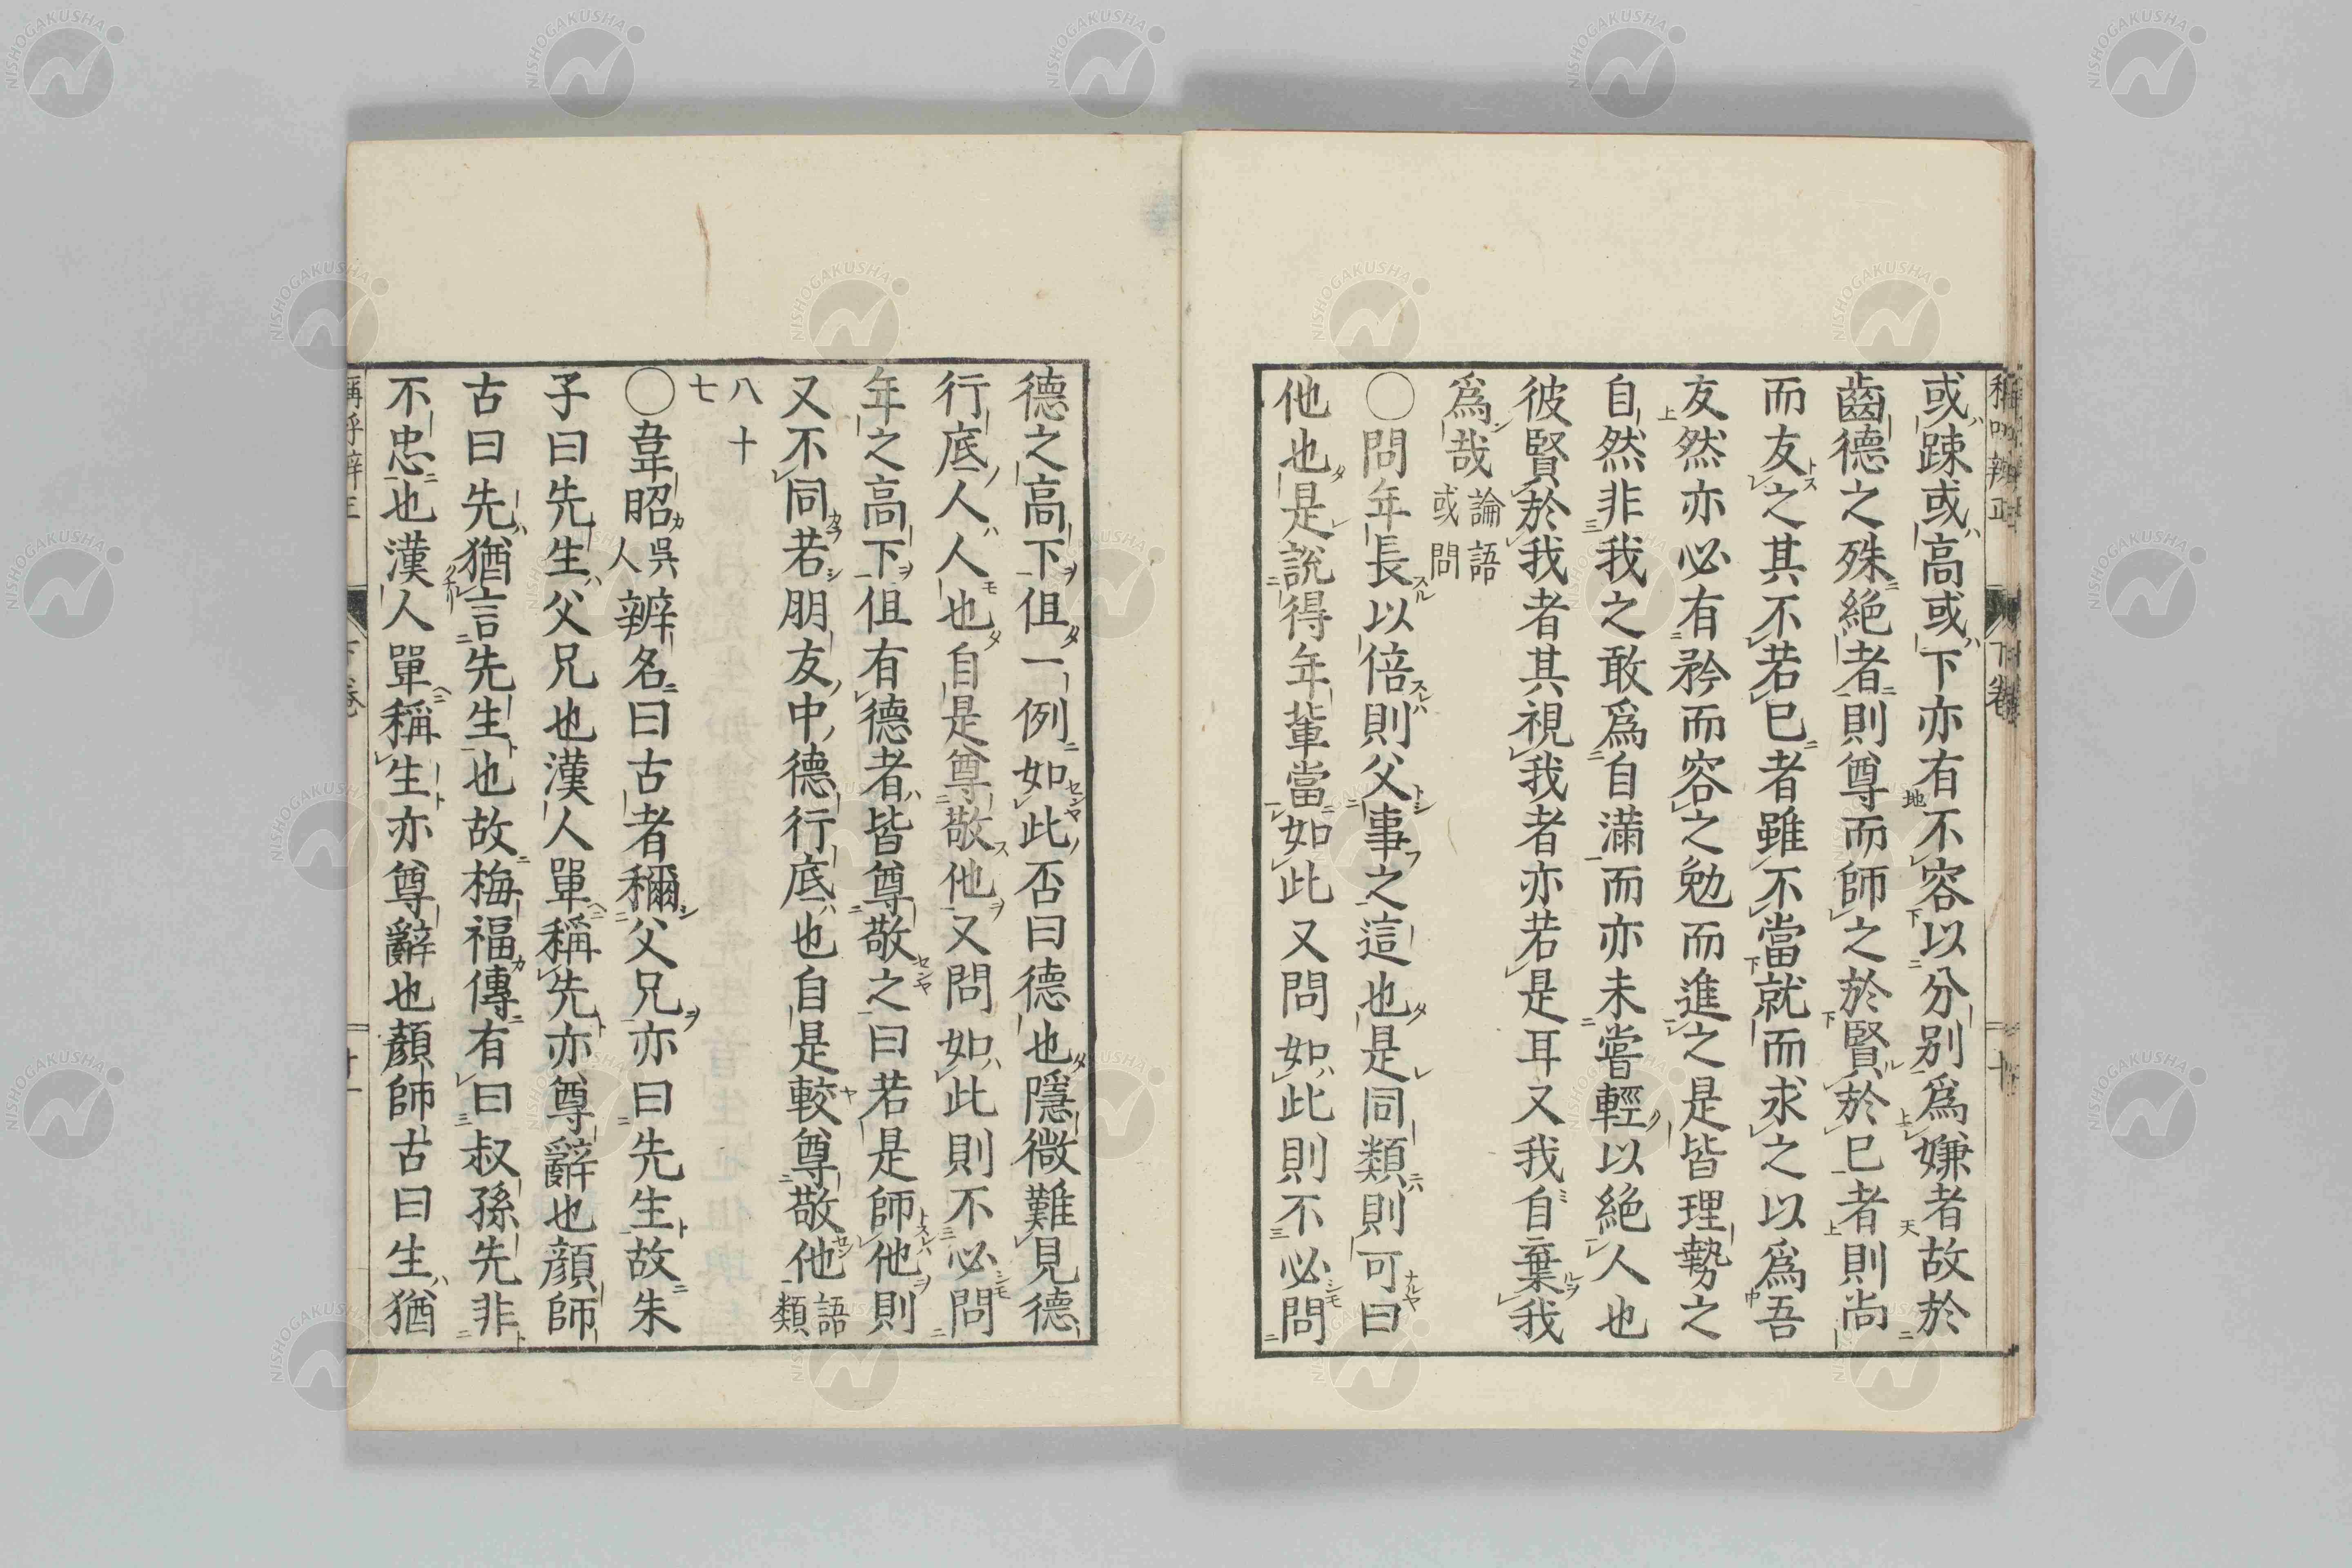 或疎或高或下亦有不容以分别爲嫌者故於
齒德之殊絶者則尊而師之於賢於已者則尚
而友之其不若已者雖不當就而求之以爲吾
友然亦必有矜而容之勉而進之是皆理勢之
自然非我之敢爲自滿而亦未嘗輕以絶人也
彼賢於我者其視我者亦若是耳又我自棄我
爲哉論語或問
〇問年長以倍則父事之這也是同類則可曰
他也是説得年輩當如此又問如此則不必問
德之高下但一例如此否曰德也隱微難見德
行底人人也自是尊敬他又問如此則不必問
年之高下但有德者皆尊敬之曰若是師他則
又不同若朋友中德行底也自是較尊敬他語類
八十七
〇韋昭吳人辨名曰古者稱父兄亦曰先生故朱
子曰先生父兄也漢人單稱先亦尊辭也顔師
古曰先猶言先生也故梅福傳有曰叔孫先非
不忠也漢人單稱生亦尊辭也顔師古曰生猶
稱呼辨正 下卷 十
稱呼辨正 下卷 十一
NISHOGAKUSHA